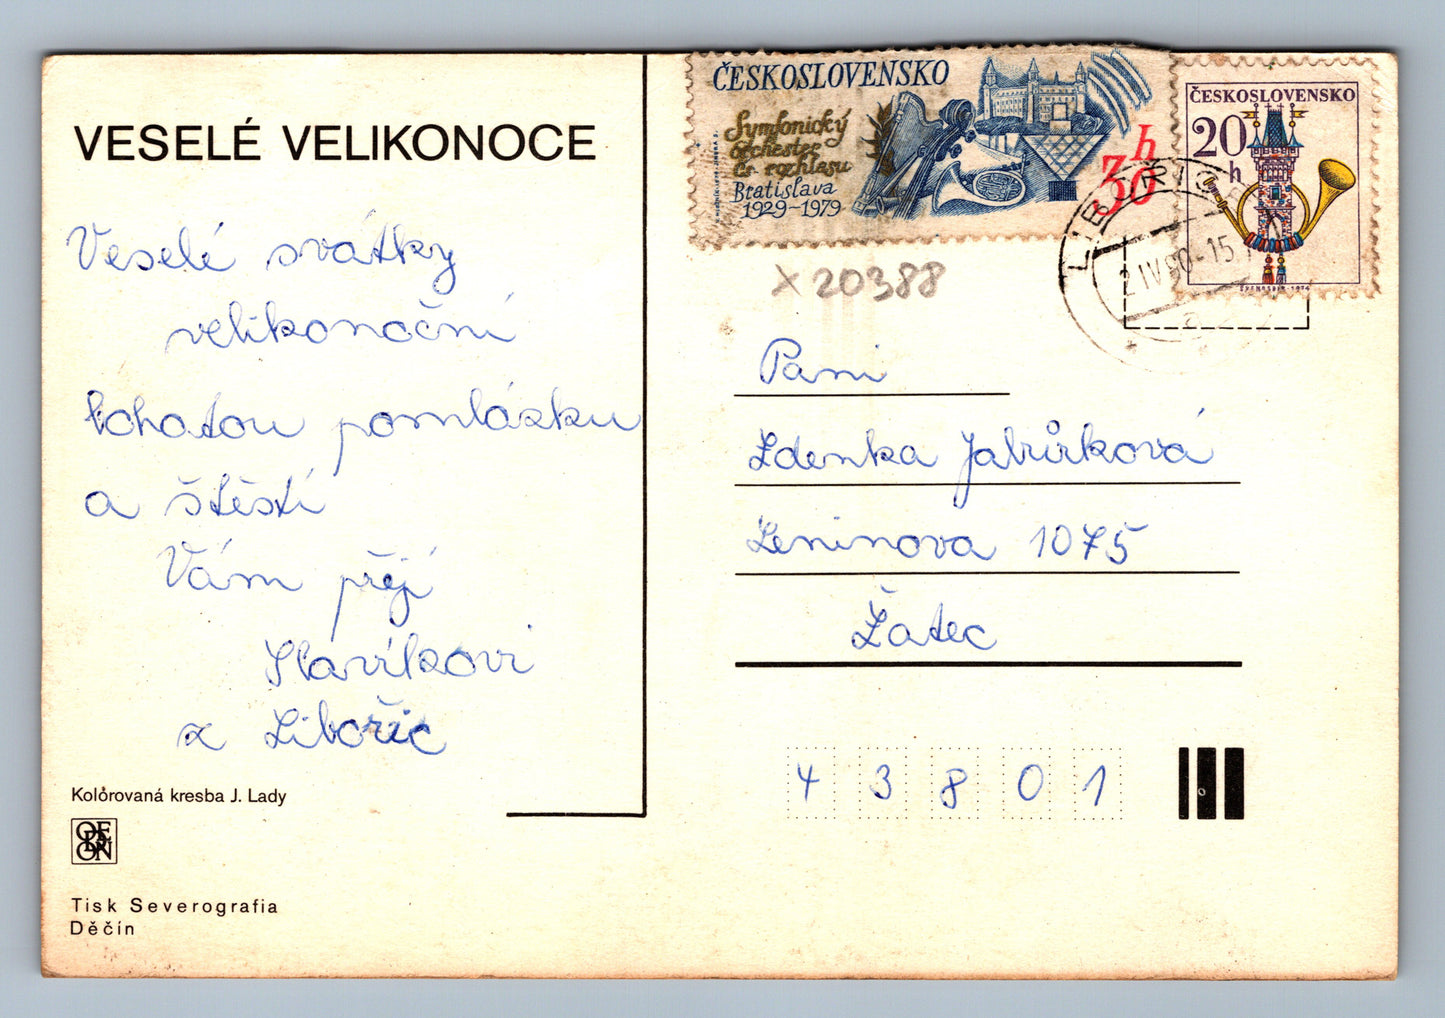 VESELÉ VELIKONOCE
Veselé svátky
velikonoční
bohatou pomlázku
a štěstí
Vám přejí
Slavíkovi
z Libořic
Kolorovaná kresba J. Lady
ODEON
Tisk Severografia
Děčín
ČESKOSLOVENSKO
Symfonický
orchester
Čs. rozhlasu
Bratislava
1929-1979
30h
ČESKOSLOVENSKO
20
h
2 IV 80-15
X 20388
Paní
Zdenka Jabůrková
Leninova 1075
Žatec
4 3 8 0 1